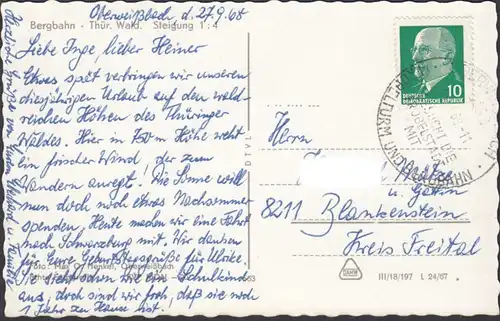 Oberweißbach d. 27.9.68
Bergbahn - Thür. Wald. Steigung 1 : 4
Liebe Inge, lieber Heiner
Etwas spät verbringen wir unseren
diesjährigen Urlaub auf den wald-
reichen Höhen des Thüringer
Waldes. Hier in 750 m Höhe weht
ein frischer Wind, der zum
Wandern anregt. Die Sonne will
nun doch noch etwas Nachsommer
spenden, Heute machen wir eine Fahrt
nach Schwarzburg mit. Wir danken
für Eure Geburtstagsgrüße für Ulrike.
Sie sieht schon wie ein Schulkind
aus, doch sind wir froh, daß sie noch
1 Jahr zu Hause ist.
Herzliche Grüße von
Foto: Henkel, Oberweißbach
10
DEUTSCHE
DEMOKRATISCHE REPUBLIK
FRÖBELTURM UND BERGBAHN
Herrn
u. Gattin
8211 Blankenstein
Kreis Freital
III/18/197 L 24/67